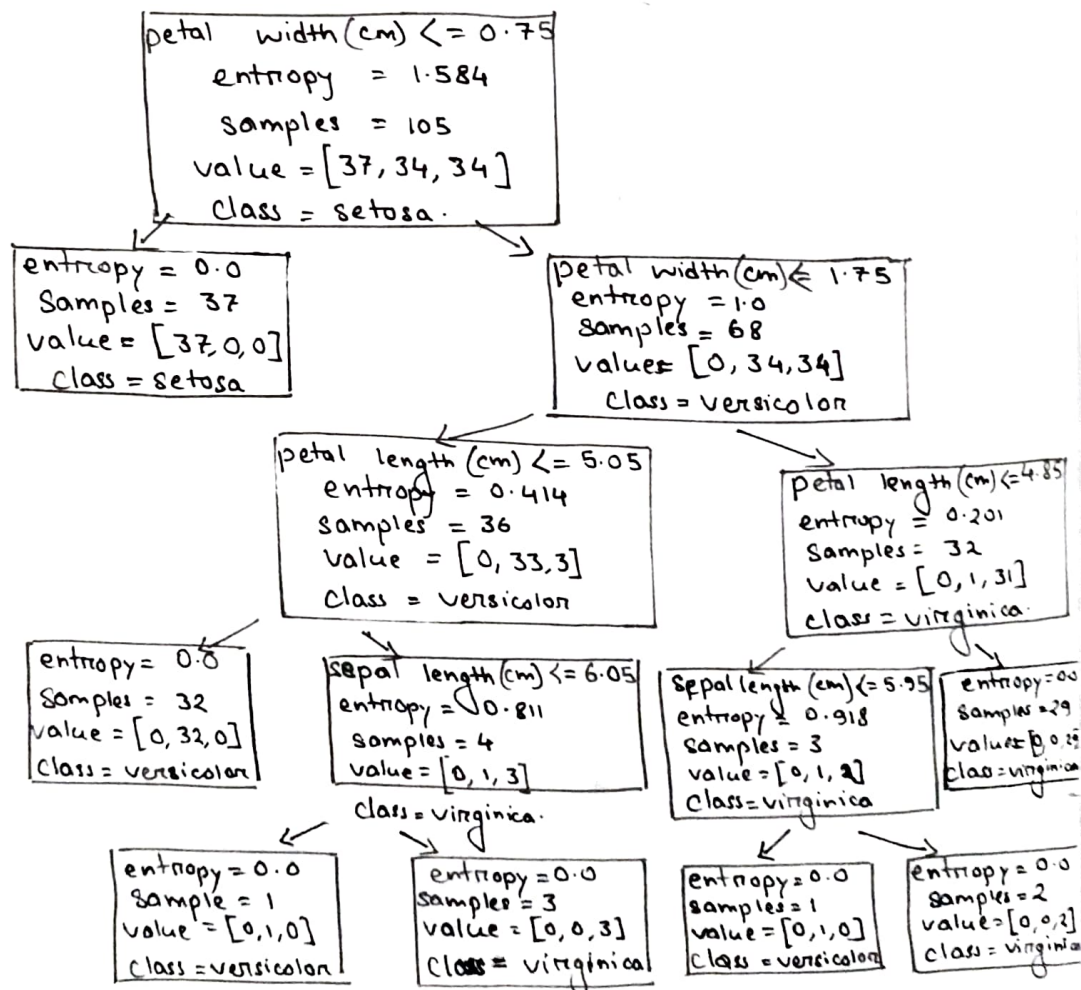 petal width (cm) <= 0.75
entropy = 1.584
samples = 105
value = [37, 34, 34]
class = setosa.
entropy = 0.0
Samples = 37
value = [37, 0, 0]
class = setosa
petal width (cm) <= 1.75
entropy = 1.0
samples = 68
values = [0, 34, 34]
class = versicolor
petal length (cm) <= 5.05
entropy = 0.414
samples = 36
value = [0, 33, 3]
class = versicolor
petal length (cm) <= 4.85
entropy = 0.201
samples = 32
value = [0, 1, 31]
class = virginica.
entropy = 0.0
samples = 32
value = [0, 32, 0]
class = versicolor
sepal length (cm) <= 6.05
entropy = 0.811
samples = 4
value = [0, 1, 3]
class = virginica.
sepal length (cm) <= 5.95
entropy = 0.918
samples = 3
value = [0, 1, 2]
class = virginica
entropy = 0.0
samples = 29
values = [0, 0, 29
class = virginica
entropy = 0.0
sample = 1
value = [0, 1, 0]
class = versicolor
entropy = 0.0
samples = 3
value = [0, 0, 3]
class = virginica
entropy = 0.0
samples = 1
value = [0, 1, 0]
class = versicolor
entropy = 0.0
samples = 2
value = [0, 0, 2]
class = virginica